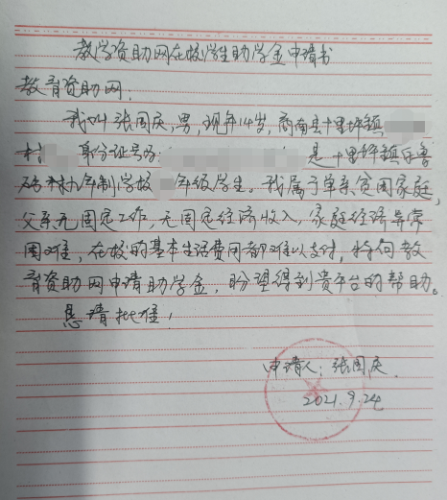 教学资助网在校学生助学金申请书
教育资助网:
我叫张国庆,男,现年14岁,商南县十里坪镇
村 身份证号码 是十里坪镇
九年制学校 年级学生。我属于单亲贫困家庭,
父亲无固定工作,无固定经济收入,家庭经济异常
困难,在校的基本生活费用都难以支付,特向教
育资助网申请助学金,盼望得到贵平台的帮助。
恳请批准!
申请人:张国庆
2021.9.24